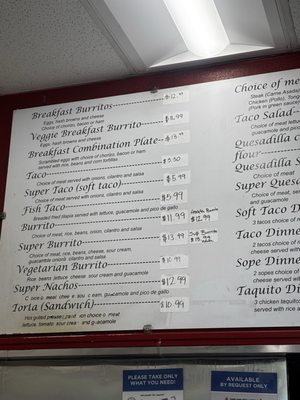 Breakfast Burritos $12.99
Eggs, hash browns and cheese
Choice of chorizo, bacon or ham
Veggie Breakfast Burrito $11.99
Eggs, hash browns and cheese
Breakfast Combination Plate
Scrambled eggs with choice of chorizo, bacon or ham
served with rice, beans and corn tortillas
Taco $3.50
Choice of meat served with onions, cilantro and salsa
Super Taco (soft taco) $5.99
Choice of meat served with onions, cilantro and salsa
Fish Taco $5.99
Breaded fried tilapia served with lettuce, guacamole and pico de gallo
Burrito $11.99
$12.99
Choice of meat, rice, beans, onion, cilantro and salsa
Super Burrito $13.99
Choice of meat, rice, beans, cheese, sour cream,
guacamole, onions, cilantro and salsa
Vegetarian Burrito
Rice, beans, lettuce, cheese, sour cream and guacamole
Super Nachos $12.99
guacamole and pico de gallo
Torta (Sandwich) $10.99
lettuce, tomato, sour cream and guacamole
Choice of me
Steak (Carne Asada)
Chicken (Pollo), Tong
(Pork in green sauce
Taco Salad
Choice of meat, lettuce
guacamole and pico
Quesadilla c
flour
Quesadilla
Choice of meat
Super Quesa
Choice of meat,
and guacamole
Soft Taco D
3 tacos choice of
Taco Dinne
2 tacos choice of
cheese served
Sope Dinne
2 sopes choice
cheese served
Taquito Di
3 chicken taquito
served with rice a
PLEASE TAKE ONLY
WHAT YOU NEED
AVAILABLE
BY REQUEST